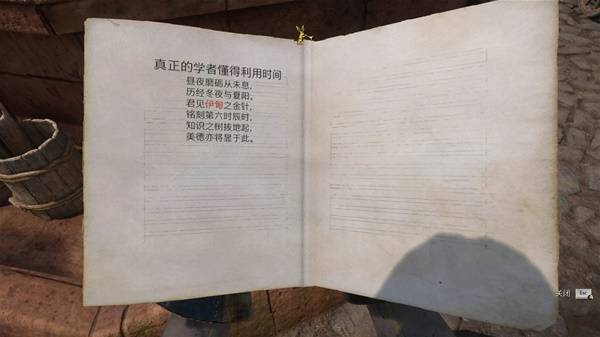 真正的学者懂得利用时间
昼夜磨砺从未息,
历经冬夜与夏阳。
君见伊甸之金针,
铭刻第六时辰时,
知识之树拔地起,
美德亦将显于此。
关闭 Esc